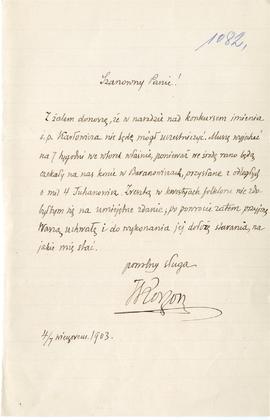 1082,
Szanowny Panie!
Z żalem donoszę, że w naradzie nad konkursem imienia
ś.p. Karłowicza nie będę mógł uczestniczyć. Muszę wyjechać
na 7 tygodni we wtorek właśnie, ponieważ we środę rano będą
czekały na nas konie w Baranowiczach, przysłane z odległych
o mil 4 Juchanowicz. Zresztą w kwestyach folkloru nie zdo-
byłbym się na umiejętne zdanie; po powrocie zatem przyjmę
Waszą uchwałę i do wykonania jej dołożę starania, na
jakie mię stać.
powolny sługa
TKorzon
4/7 1903.